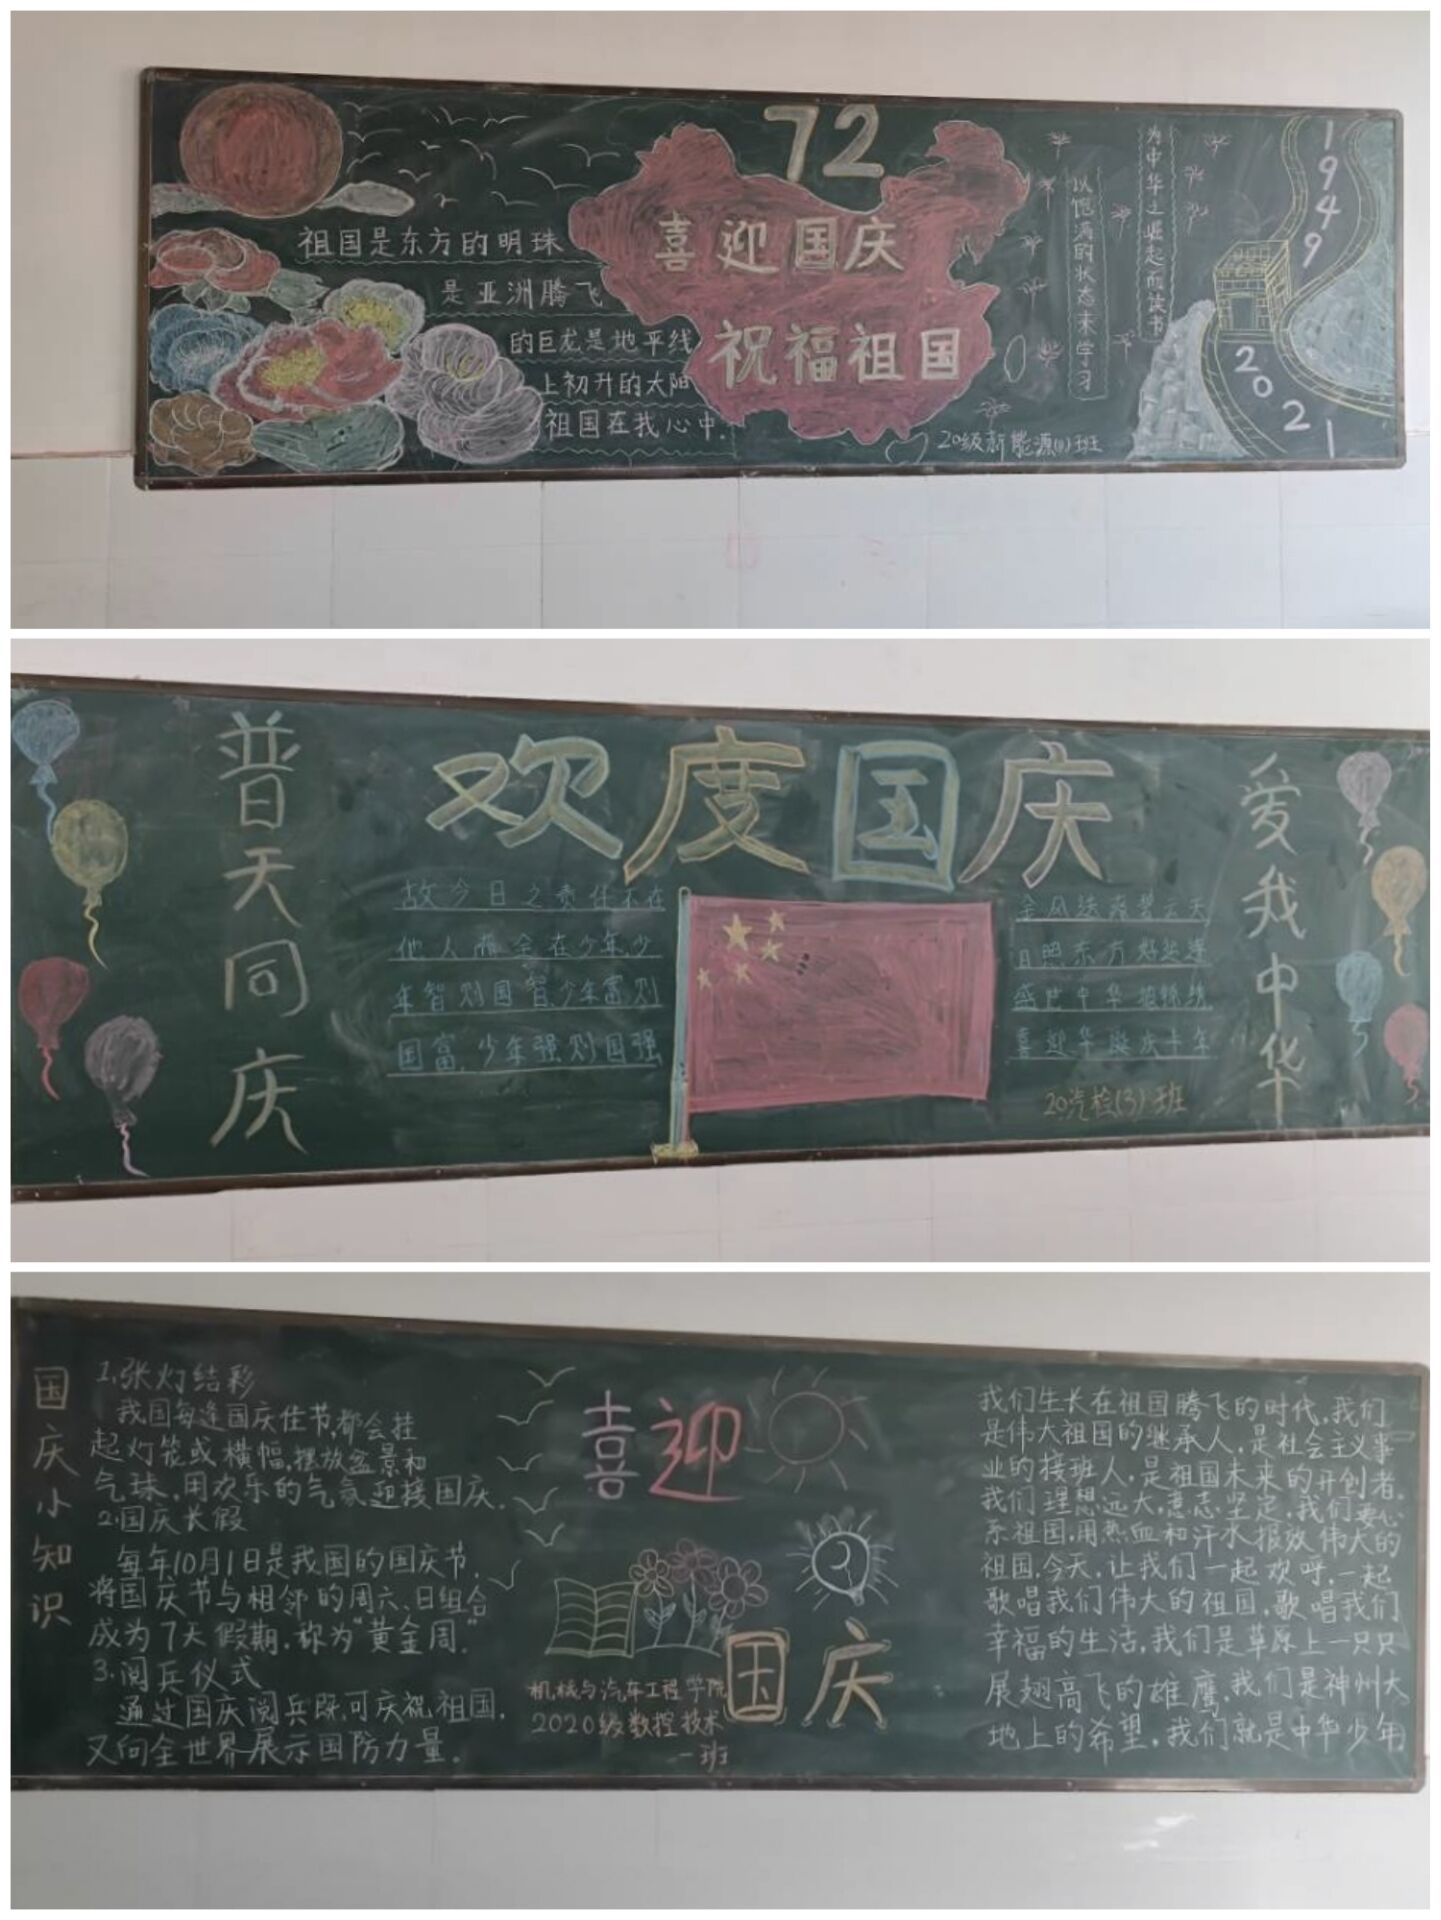 72
喜迎国庆
祝福祖国
祖国是东方的明珠
是亚洲腾飞
的巨龙是地平线
上初升的太阳
祖国在我心中.
以饱满的状态来学习
为中华之崛起而读书
20级新能源(1)班
1949
2021
普天同庆
欢度国庆
爱我中华
故今日之责任不在
他人而全在少年少
年智则国智,少年富则
国富,少年强则国强
金风送爽碧云天
日照东方好运连
盛世中华描锦绣
喜迎华诞庆丰年
20汽检(3)班
国庆小知识
1.张灯结彩
我国每逢国庆佳节,都会挂
起灯笼或横幅,摆放盆景和
气球,用欢乐的气氛迎接国庆.
2.国庆长假
每年10月1日是我国的国庆节,
将国庆节与相邻的周六、日组合
成为7天假期,称为“黄金周”
3.阅兵仪式
通过国庆阅兵既可庆祝祖国,
又向全世界展示国防力量.
喜迎
国庆
机械与汽车工程学院
2020级数控技术
一班
我们生长在祖国腾飞的时代,我们
是伟大祖国的继承人,是社会主义事
业的接班人,是祖国未来的开创者.
我们理想远大,意志坚定,我们要心
系祖国,用热血和汗水报效伟大的
祖国.今天,让我们一起欢呼,一起
歌唱我们伟大的祖国,歌唱我们
幸福的生活,我们是草原上一只只
展翅高飞的雄鹰,我们是神州大
地上的希望,我们就是中华少年